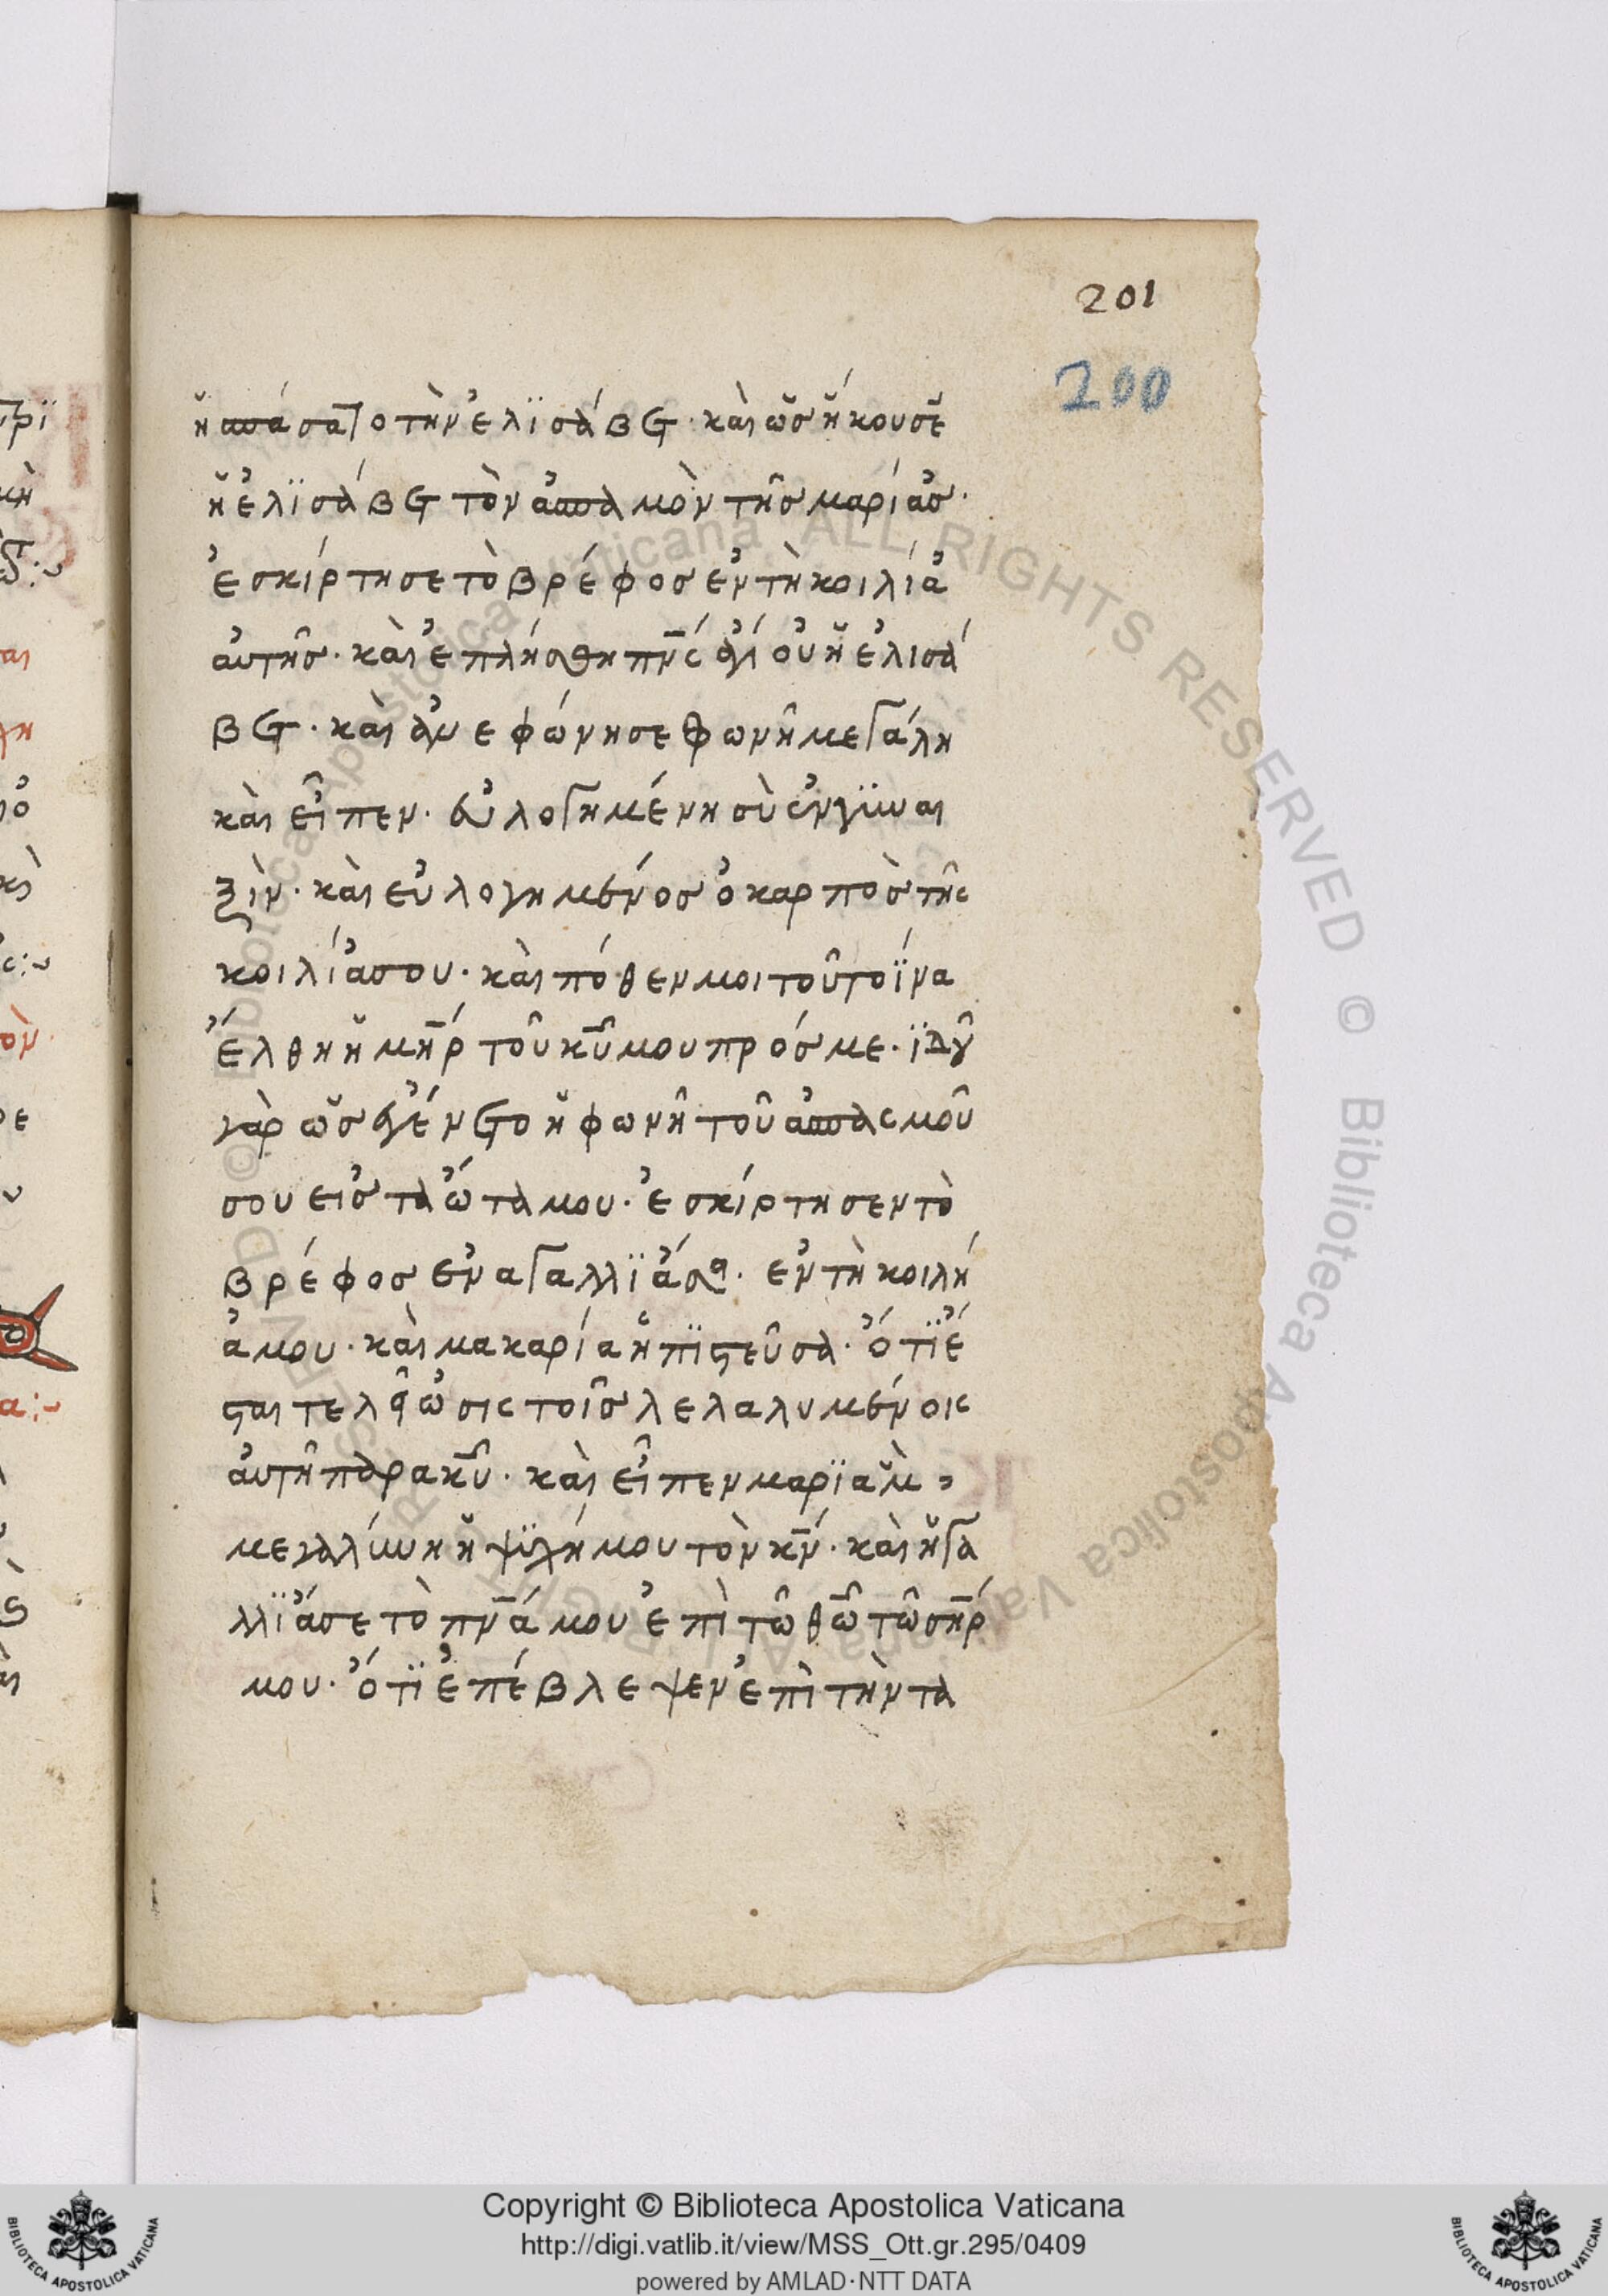 201
200
ἠσπάσατο τὴν ἐλϊσάβετ· καὶ ὡς ἤκουσε
ἡ ἐλϊσάβετ τὸν ἀσπαμὸν τῆς μαρίας·
ἐσκίρτησε τὸ βρέφος ἐν τὴ κοιλία
αὐτῆς· καὶ ἐπλήσθη πν̅ς ἁγίου ἡ ἐλισά
βετ· καὶ ἀνεφώνησε φωνῆ μεγάλη
καὶ εἶπεν· εὐλογημένη σὺ ἐν γϋναι
ξὶν· καὶ εὐλογημένος ὁ καρπὸς τῆς
κοιλίας σου· καὶ πόθεν μοι τοῦτο ϊνα
ἔλθη ἡ μη̅ρ τοῦ κυ̅ μου πρός με· ϊδοῦ
γὰρ ὡς ἐγένετο ἡ φωνῆ τοῦ ἀσπασμοῦ
σου εἰς τα ὦτα μου· ἐσκίρτησεν τὸ
βρέφος ἐν αγαλλϊάσει· ἐν τὴ κοιλή
ἀ μου· καὶ μακαρία ἡ πϊστεῦσα· ὅτϊ ἔ
σται τελείωσις τοῖς λελαλυμένοις
αὐτῆ παρα κυ̅· καὶ εἶπεν μαρϊὰμ,
μεγαλύνη ἡ ψϋχή μου τὸν κν̅· καὶ ἠγα
λλϊάσε τὸ πν̅ά μου ἐπὶ τῶ θω̅ τῶ ση̅ρ
μου· ὅτϊ ἐπέβλεψεν ἐπὶ τὴν τα
Copyright © Biblioteca Apostolica Vaticana
http://digi.vatlib.it/view/MSS_Ott.gr.295/0409
powered by AMLAD·NTT DATA